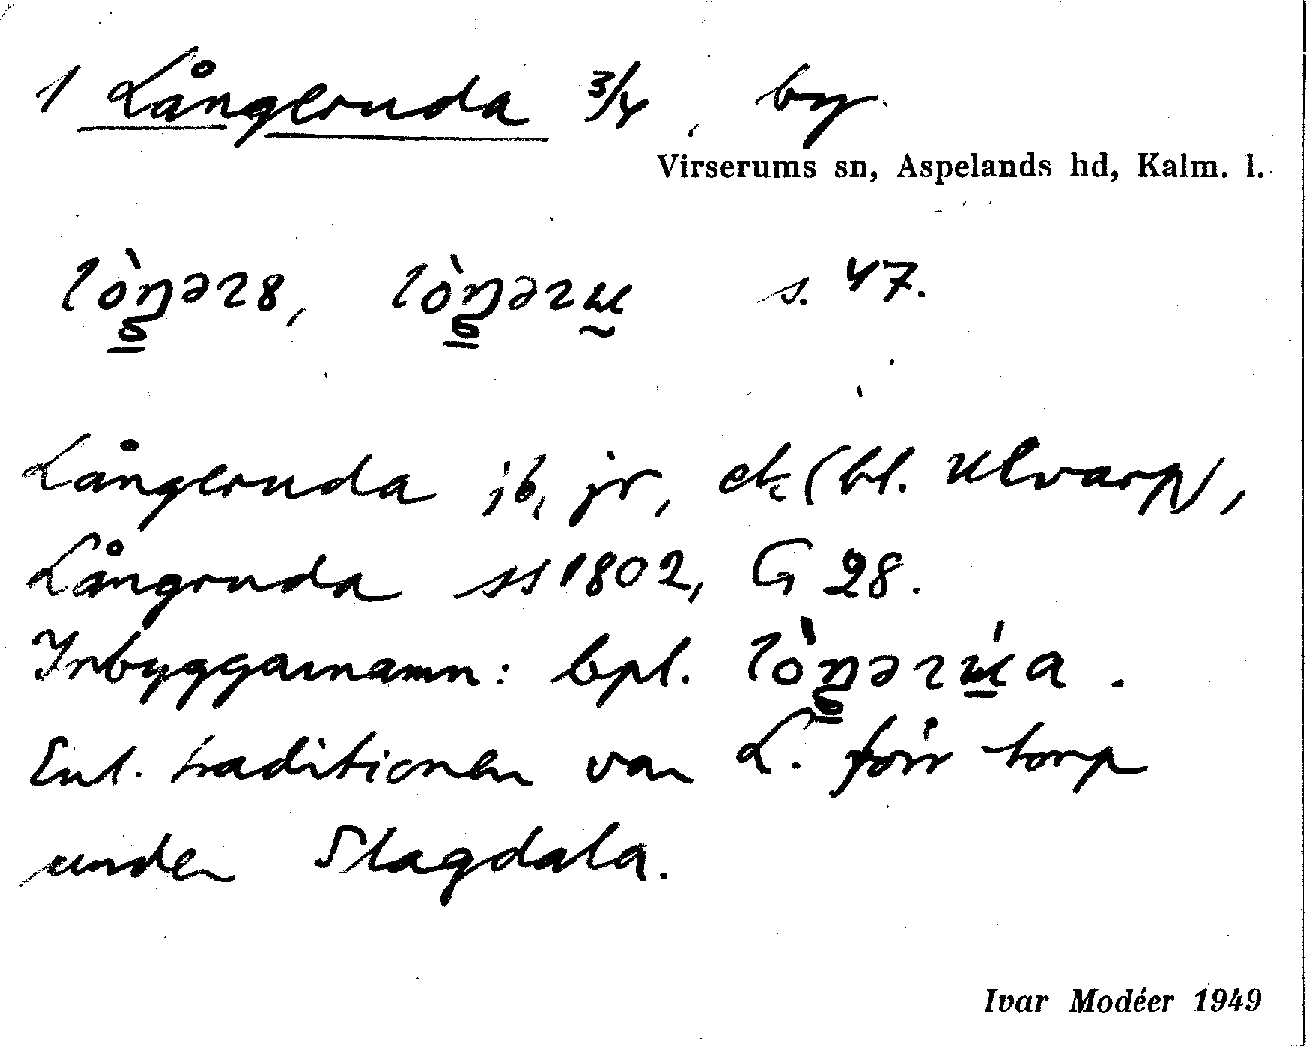 1 Långeruda 3/4, by
Virserums sn, Aspelands hd, Kalm. l.
lòŋərȣ, lòŋəru s. 47.
Långeruda jb, jr, ek (bl. Ulvarp),
Långruda ss 1802, G 28.
Inbyggarnamn: bpl. lòŋərúa.
Enl. traditionen var L. förr torp
under Slagdala.
Ivar Modéer 1949